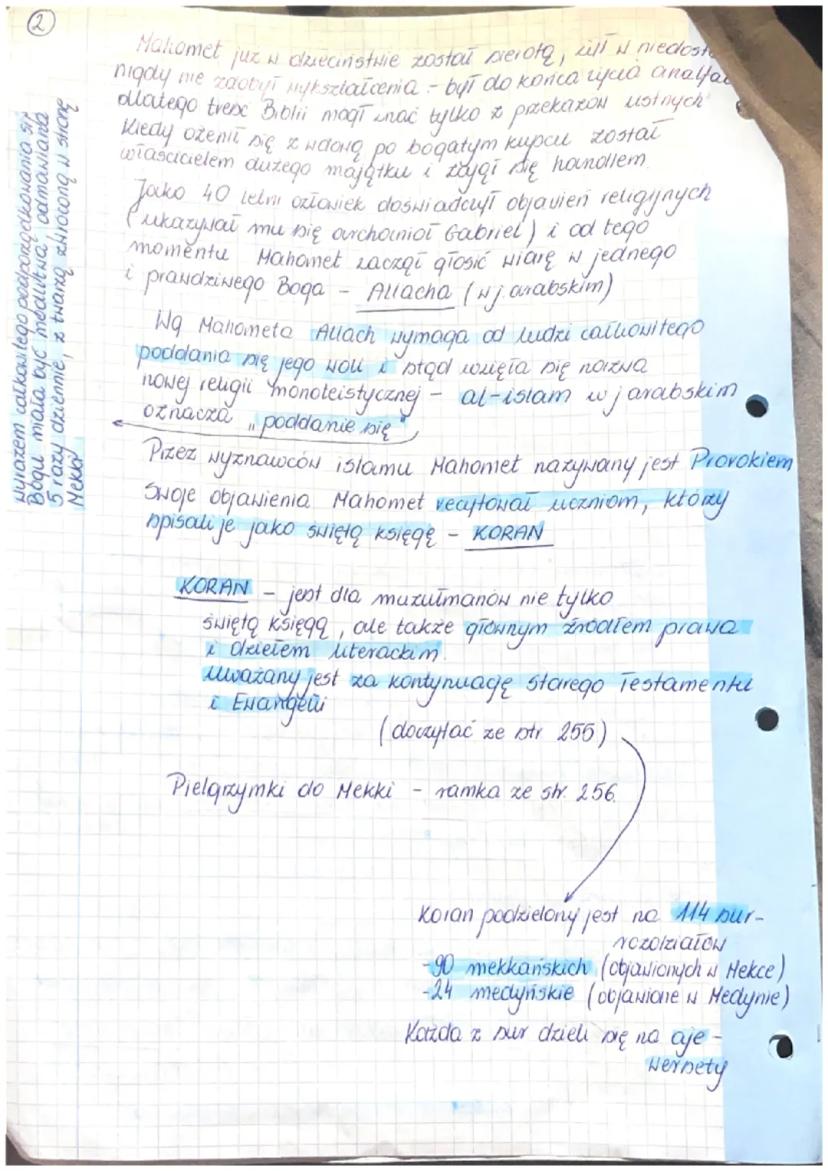 2
Mahomet już w dzieciństwie został sierotą, żył w
nigdy nie zdobył wykształcenia - był do końca życia
dlatego treść Biblii mógł znać tylko z przekazów ustnych
Kiedy ożenił się z wdową po bogatym kupcu został
właścicielem dużego majątku i zajął się handlem.
Jako 40 letni człowiek doświadczył objawień religijnych
(ukazywał mu się archanioł Gabriel) i od tego
momentu Mahomet zaczął głosić wiarę w jednego
i prawdziwego Boga - Allacha (w j. arabskim)
Wg Mahometa Allach wymaga od ludzi całkowitego
poddania się jego woli i stąd wzięła się nazwa
nowej religii monoteistycznej - al-islam w j arabskim
oznacza „poddanie się"
Wyrazem całkowitego podporządkowania się
Bogu miała być modlitwa odmawiana
5 razy dziennie, z twarzą zwróconą w stronę
Mekki
Przez wyznawców islamu Mahomet nazywany jest Prorokiem
Swoje objawienia Mahomet recytował uczniom, którzy
spisali je jako świętą księgę - KORAN
KORAN - jest dla muzułmanów nie tylko
świętą księgą, ale także głównym źródłem prawa
i dziełem literackim.
Uważany jest za kontynuację Starego Testamentu
i Ewangelii
(doczytać ze str 255)
Pielgrzymki do Mekki - ramka ze str. 256.
Koran podzielony jest na 114 sur-
rozdziałów
-90 mekkańskich (objawionych w Mekce)
-24 medyńskie (objawione w Medynie)
Każda z sur dzieli się na aje -
wersety